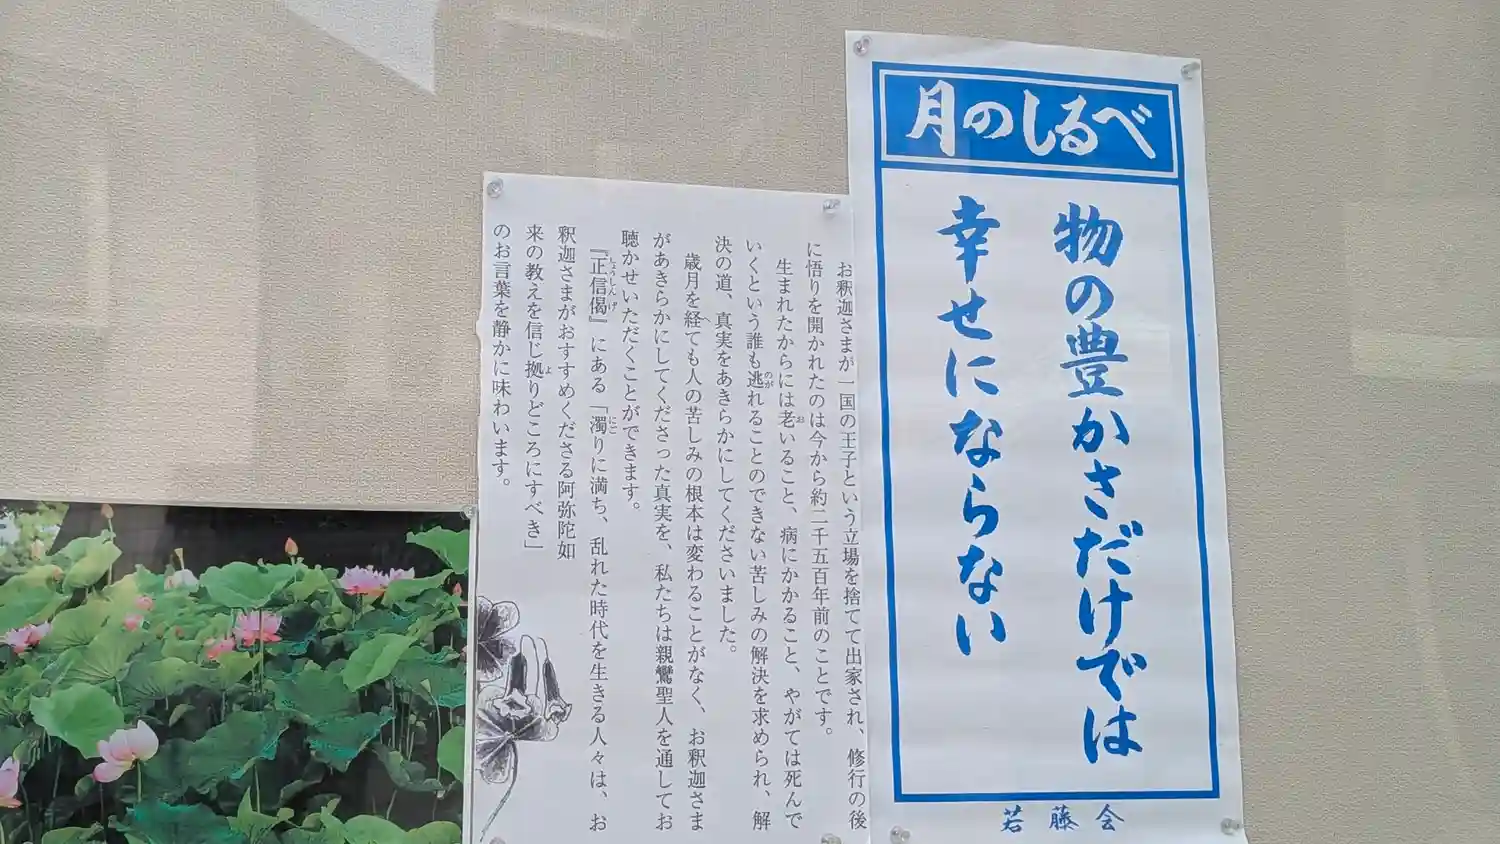 月のしるべ
物の豊かさだけでは
幸せにならない
若藤会
お釈迦さまが一国の王子という立場を捨てて出家され、修行の後
に悟りを開かれたのは今から約二千五百年前のことです。
生まれたからには老いること、病にかかること、やがては死んで
いくという誰も逃れることのできない苦しみの解決を求められ、解
決の道、真実をあきらかにしてくださいました。
歳月を経ても人の苦しみの根本は変わることがなく、お釈迦さま
があきらかにしてくださった真実を、私たちは親鸞聖人を通してお
聴かせいただくことができます。
『正信偈』にある「濁りに満ち、乱れた時代を生きる人々は、お
釈迦さまがおすすめくださる阿弥陀如
来の教えを信じ拠りどころにすべき」
のお言葉を静かに味わいます。